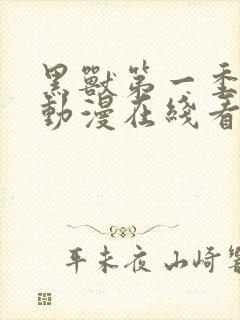 黑獸第一季
動漫在綫看
平未夜 山崎響